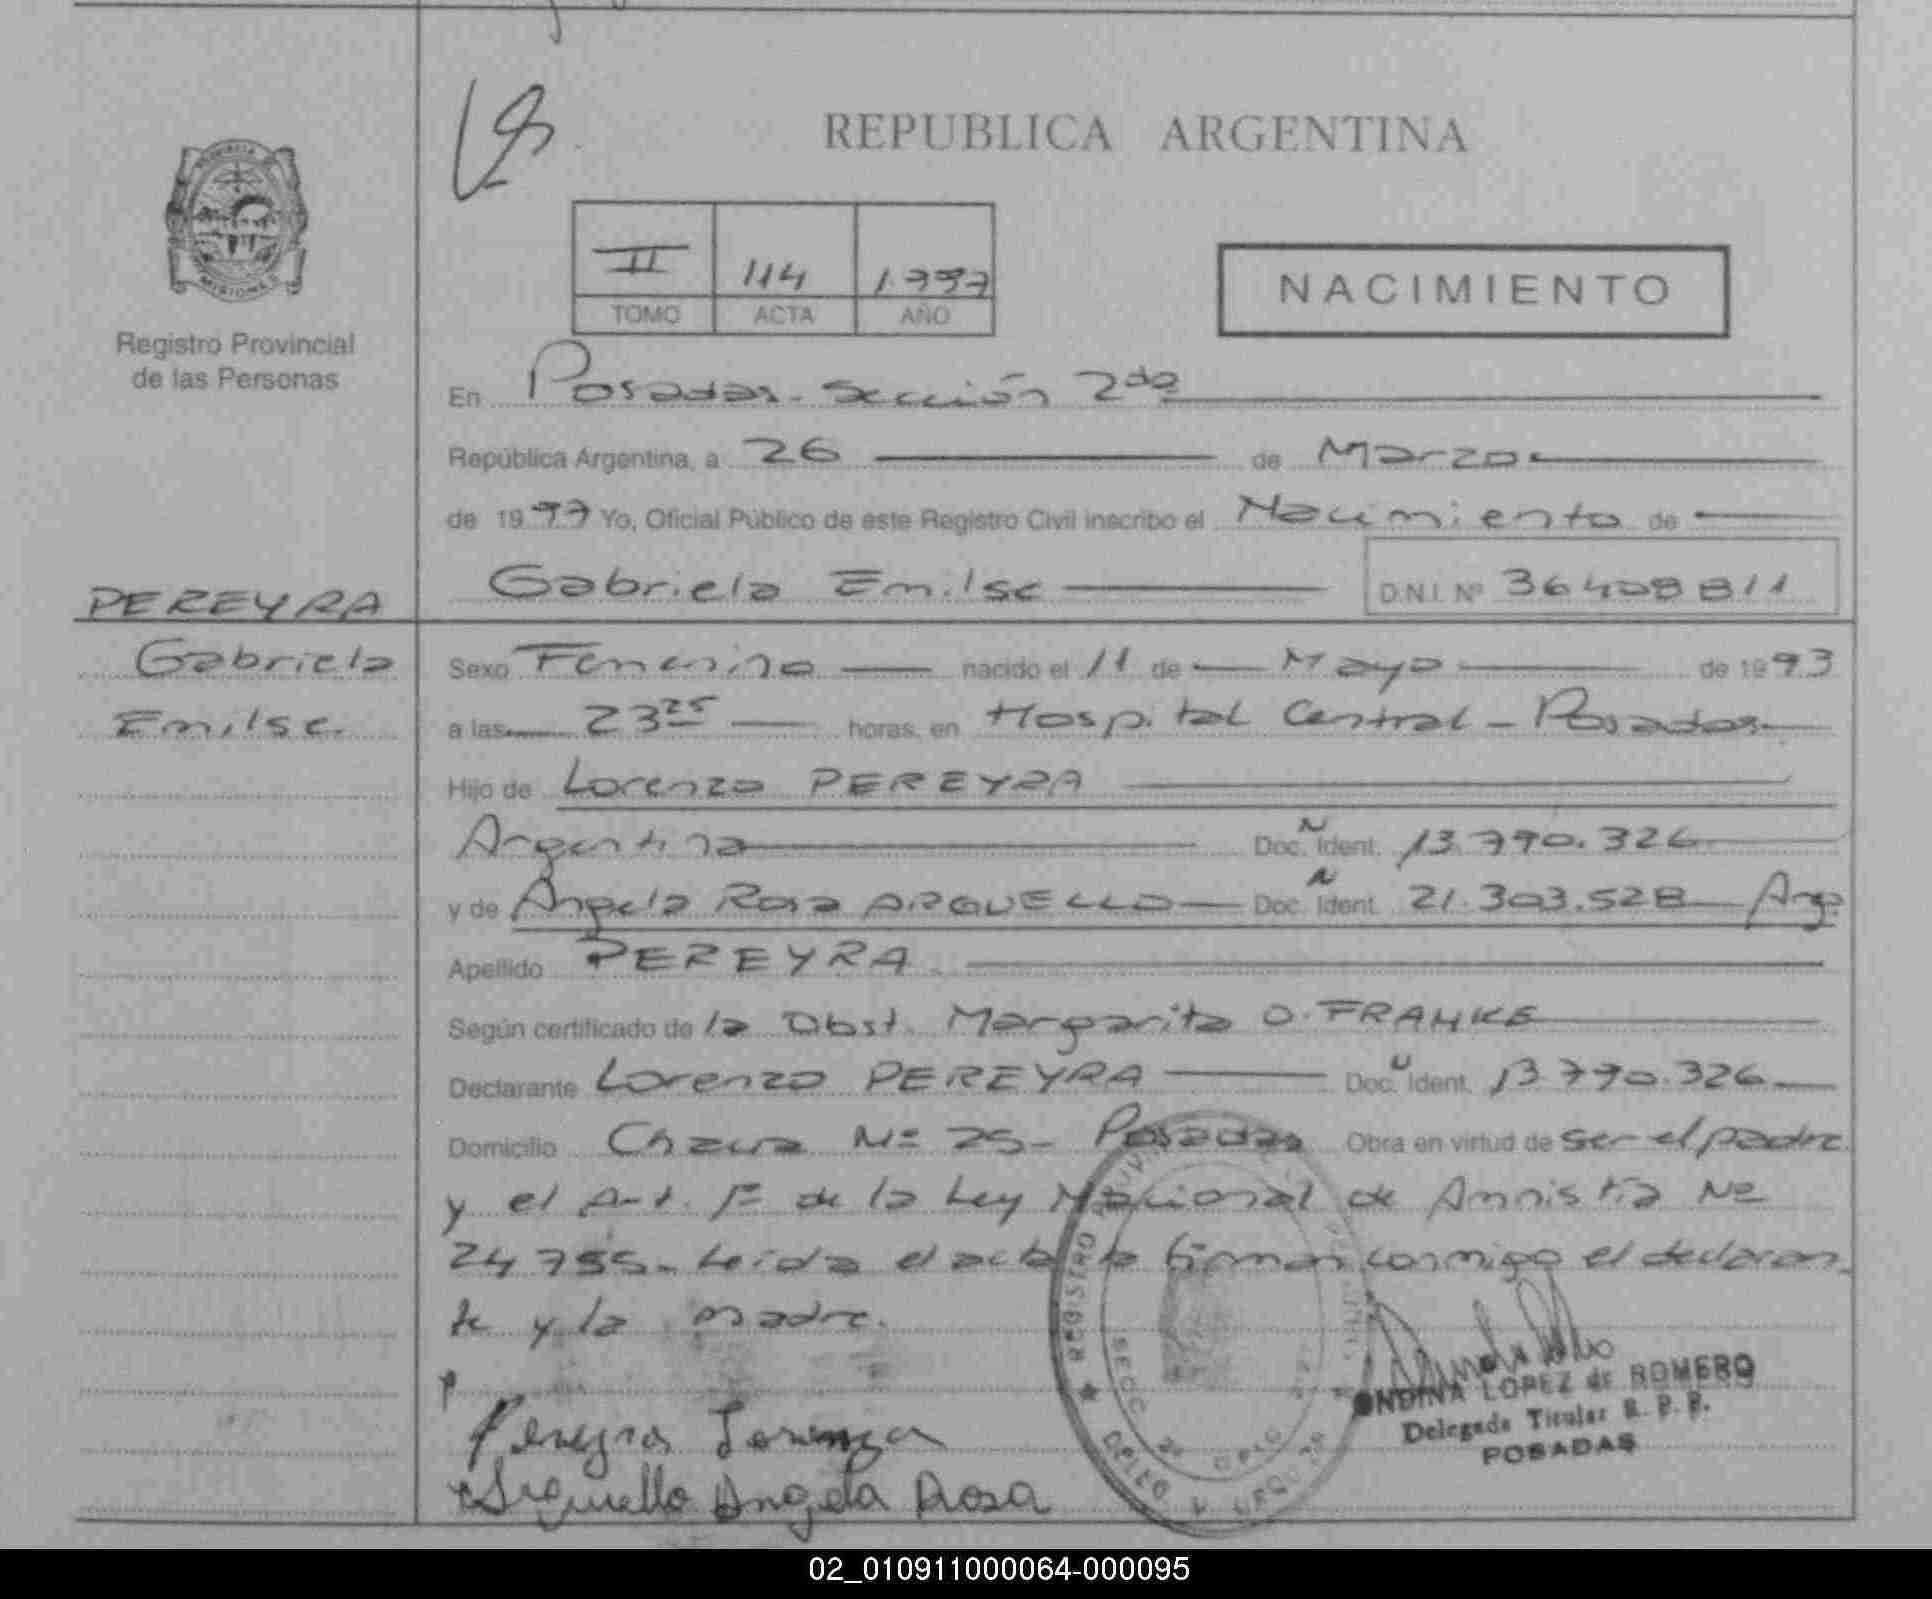 REPUBLICA ARGENTINA
PROVINCIA DE
MISIONES
Registro Provincial
de las Personas
II 114 1.997
TOMO ACTA AÑO
NACIMIENTO
En Posadas - Sección 2da
República Argentina, a 26 de Marzo
de 1997 Yo, Oficial Público de este Registro Civil inscribo el Nacimiento de
Gabriela Emilse D.N.I. Nº 36408811
PEREYRA
Gabriela
Emilse
Sexo Femenino nacido el 11 de Mayo de 1993
a las 23 25 horas, en Hospital Central - Posadas
Hijo de Lorenzo PEREYRA
Argentina Doc. N Ident. 13.790.326
y de Angela Rosa ARGUELLO Doc. N Ident. 21.303.528 Arg.
Apellido PEREYRA
Según certificado de la Obst. Margarita O. FRANKE
Declarante Lorenzo PEREYRA Doc. N Ident. 13.790.326
Domicilio Nº 25 - Posadas Obra en virtud de ser el padre
y el Art. 1º de la Ley Nacional de Amnistía Nº
24755 - Leída el acta la firman conmigo el declaran
te y la madre.
Pereyra Lorenzo
Arguello Angela Rosa
REGISTRO
SECC 2ª
ONDINA LOPEZ de ROMERO
Delegada Titular R. P. P.
POSADAS
02_010911000064-000095